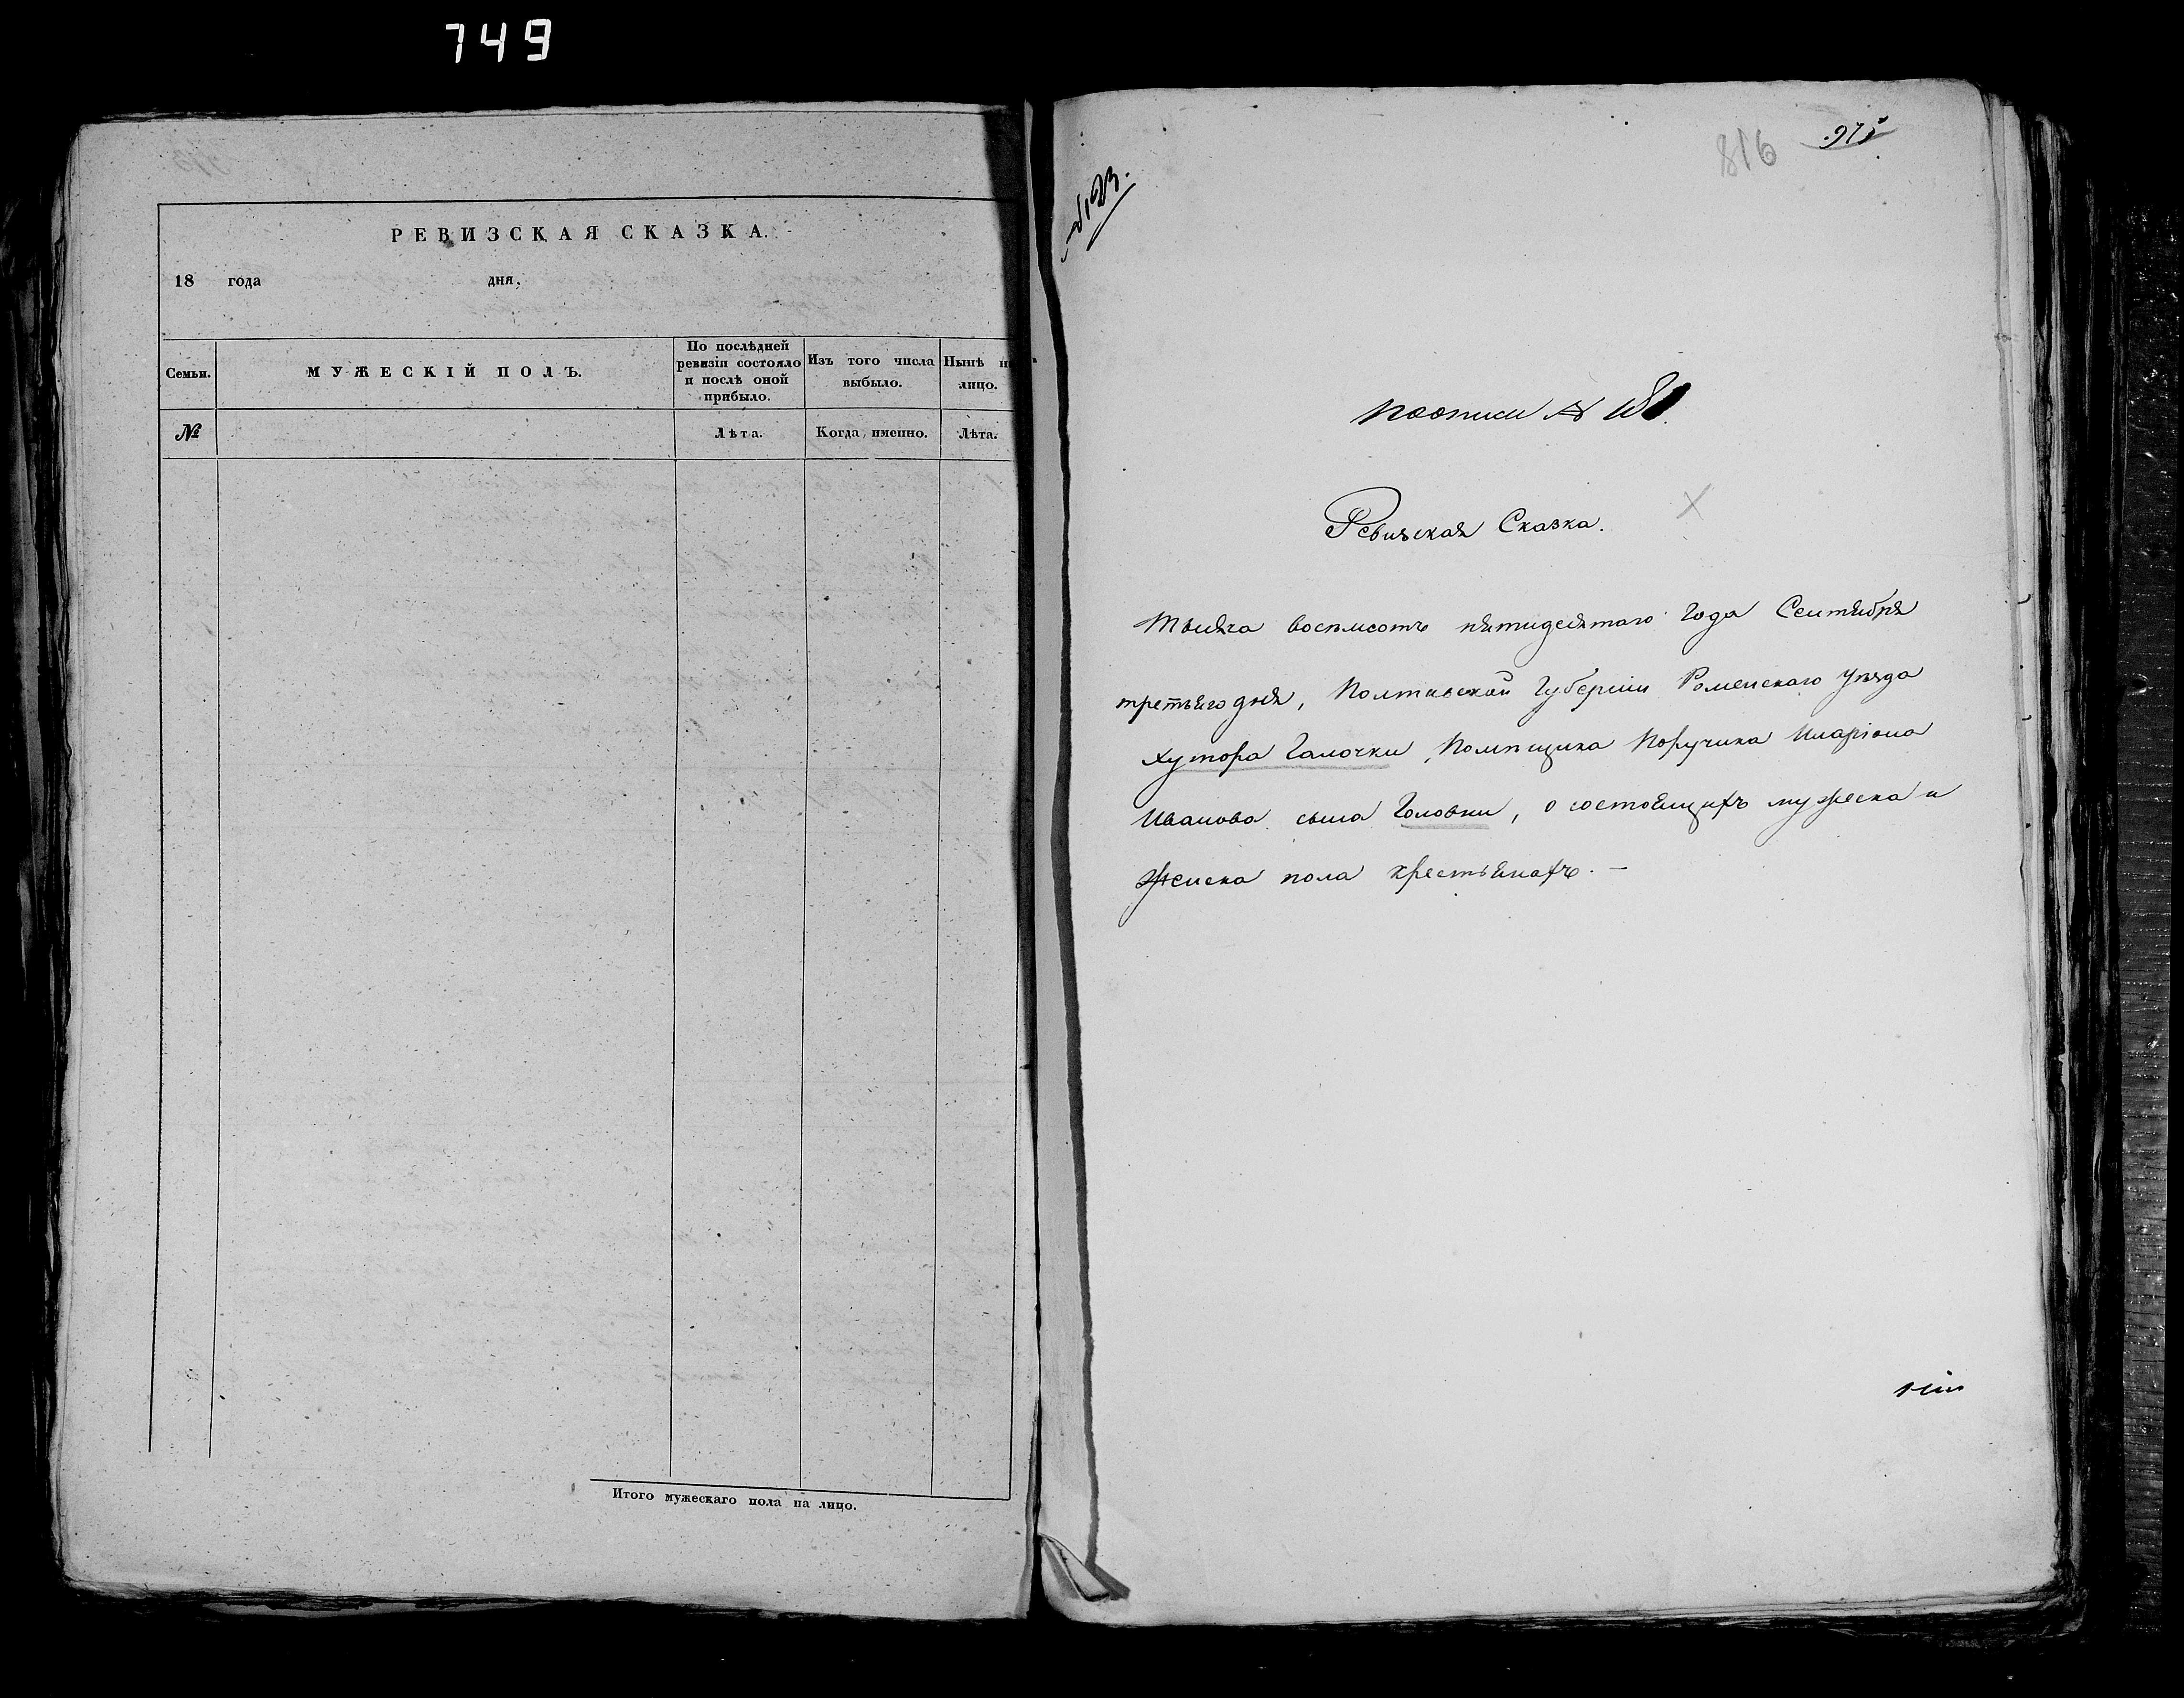 749
РЕВИЗСКАЯ СКАЗКА.
18 года дня,
Семьи.
МУЖЕСКІЙ ПОЛЪ.
По послѣдней ревизіи состояло и послѣ оной прибыло.
Изъ того числа выбыло.
Нынѣ на лицо.
№
Лѣта.
Когда именно.
Лѣта.
Итого мужескаго пола на лицо.
816
975
№ 123.
По описи №
Ревизская Сказка.
Тысяча восемьсотъ пятидесятаго Года Сентября
третьяго дня, Полтавской Губерніи Роменскаго уѣзда
Хутора Галочки, Помѣщика Поручика Иларіона
Иванова сына Головни, о состоящихъ мужеска и
Женска пола крестьянахъ. —